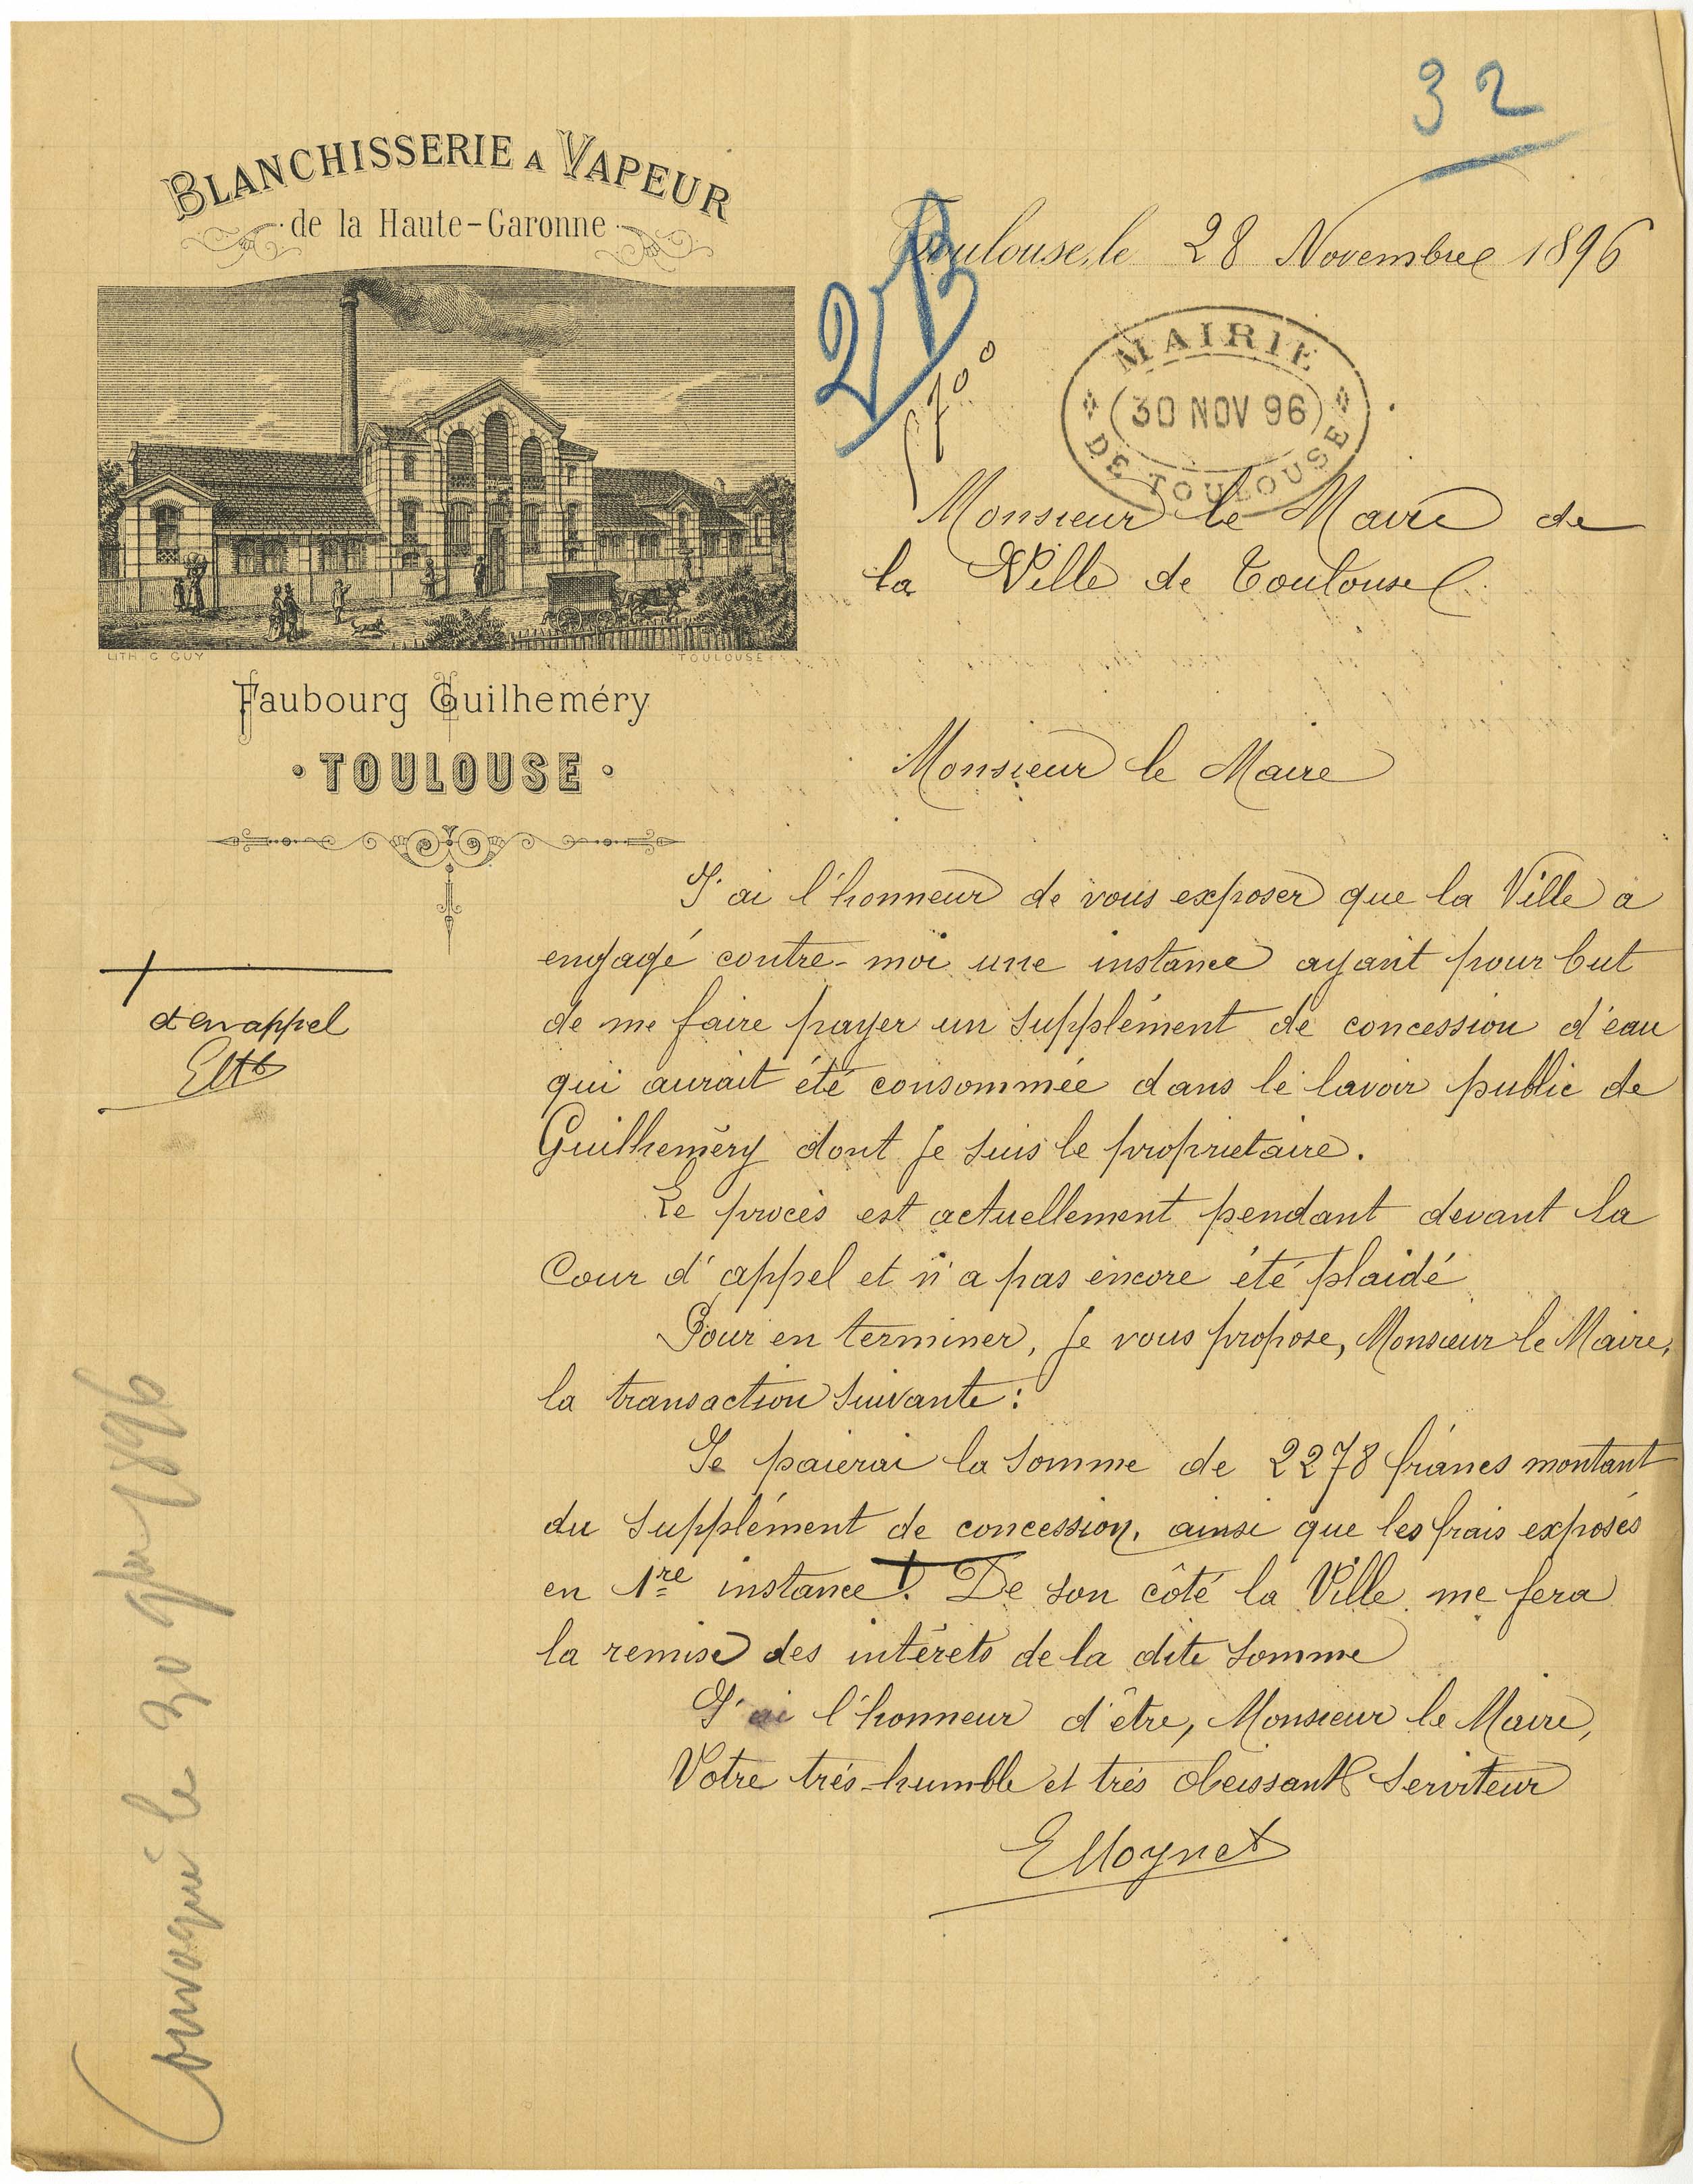 32
BLANCHISSERIE A VAPEUR
de la Haute-Garonne
LITH. G. GUY TOULOUSE
Faubourg Guilheméry
TOULOUSE
Toulouse, le 28 Novembre 1896
MAIRIE
30 NOV 96
DE TOULOUSE
Monsieur le Maire de
la Ville de Toulouse
Monsieur le Maire
J'ai l'honneur de vous exposer que la Ville a
engagé contre-moi une instance ayant pour but
de me faire payer un supplément de concession d'eau
qui aurait été consommée dans le lavoir public de
Guilheméry dont je suis le proprietaire.
Le procès est actuellement pendant devant la
Cour d'appel et n'a pas encore été plaidé
Pour en terminer, je vous propose, Monsieur le Maire,
la transaction suivante :
Je paierai la somme de 2278 francs montant
du supplément de concession, ainsi que les frais exposés
en 1re instance +. De son côté la Ville me fera
la remise des intérets de la dite somme
J'ai l'honneur d'être, Monsieur le Maire,
Votre trés-humble et trés obeissant Serviteur
E Moynet
+
et en appel
Convoqué le 30 9bre 1896